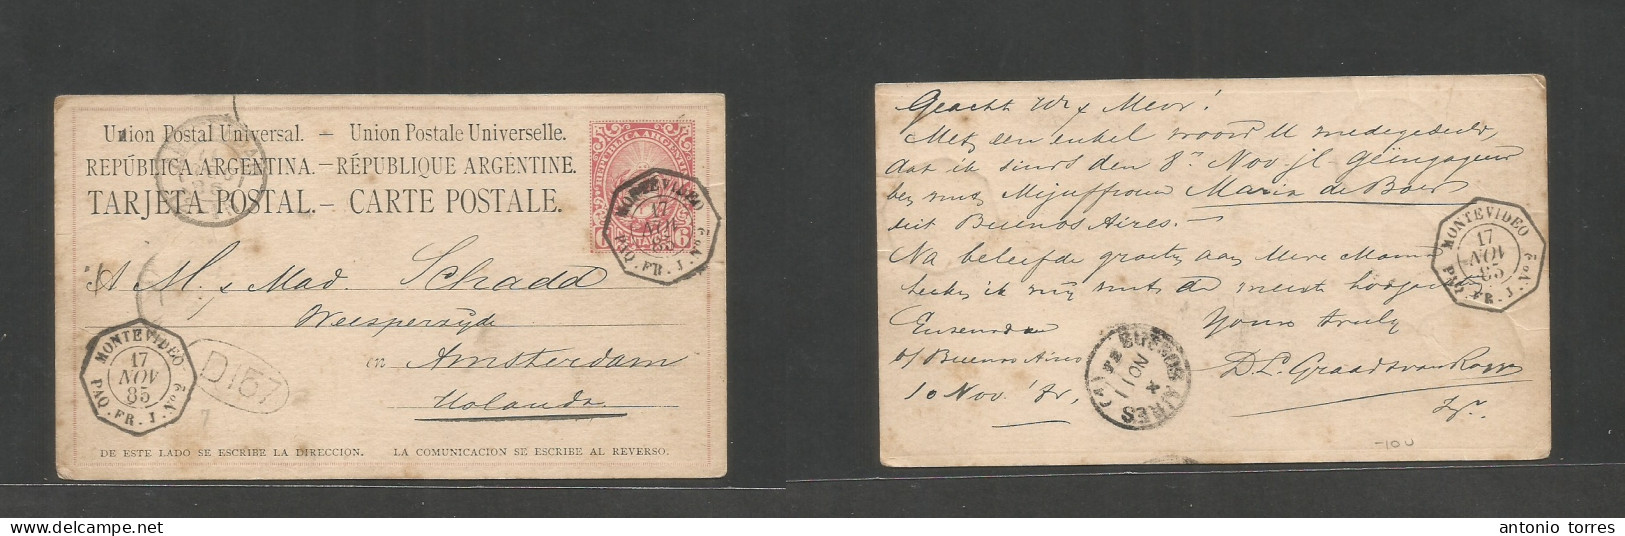 Union Postal Universal. — Union Postale Universelle.
REPÚBLICA ARGENTINA. — RÉPUBLIQUE ARGENTINE.
TARJETA POSTAL. — CARTE POSTALE.
REPUBLICA ARGENTINA
6 6
MONTEVIDEO
17
NOV
85
PAQ. FR. J. Nº 2
A M. & Mad. Schadd
Weesperzijde
en Amsterdam
Holanda
MONTEVIDEO
17
NOV
85
PAQ. FR. J. Nº 2
D157
7
DE ESTE LADO SE ESCRIBE LA DIRECCION. LA COMUNICACION SE ESCRIBE AL REVERSO.
Geacht Mevr!
Met een enkel woord U medegedeeld,
dat ik sinds den 8n Nov jl geëngageerd
ben met Mejuffrouw Maria de Boer
uit Buenos Aires. —
Na beleefde groeten aan Mevr Mama
teeken ik mij met de meeste hoogacht
Ensenada Yours truly
b/ Buenos Aires
10 Nov. 85,
BUENOS AIRES
NOV 11
MONTEVIDEO
17
NOV
85
PAQ. FR. J. Nº 2
-10U
antonio torres